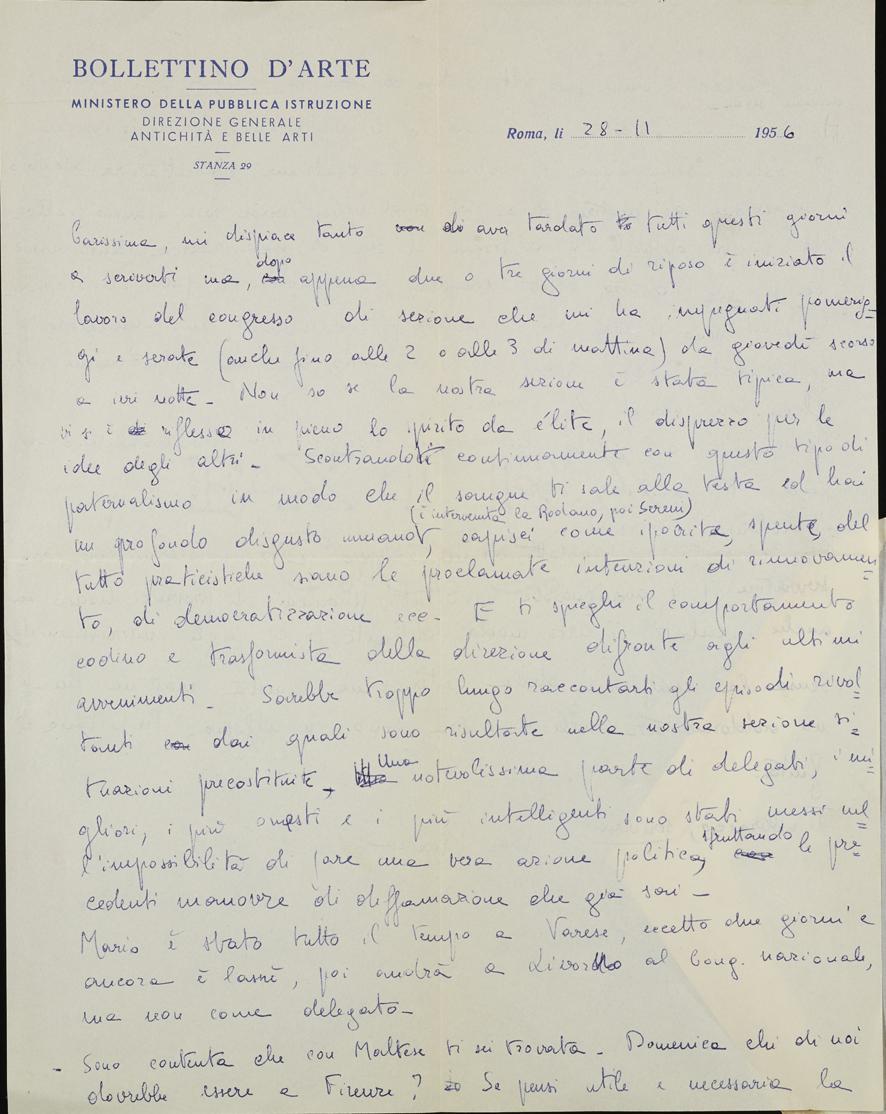 BOLLETTINO D'ARTE
MINISTERO DELLA PUBBLICA ISTRUZIONE
DIREZIONE GENERALE
ANTICHITÀ E BELLE ARTI
STANZA 29
Roma, li 28-11 1956
Carissima, mi dispiace tanto di aver tardato tutti questi giorni
a scriverti ma, dopo appena due o tre giorni di riposo è iniziato il
lavoro del congresso di sezione che mi ha impegnati pomerig=
gi e serate (anche fino alle 2 o alle 3 di mattina) da giovedì scorso
a ieri notte - Non so se la nostra sezione è stata tipica, ma
vi si è riflesso in pieno lo spirito da élite, il disprezzo per le
idee degli altri - Scontrandoti continuamente con questo tipo di
paternalismo in modo che il sangue ti sale alla testa ed hai
(è intervenuta la Rodano, poi Sereni)
un profondo disgusto umano, capisci come ipocrite, spente, del
tutto praticistiche siano le proclamate intenzioni di rinnovamen=
to, di democratizzazione ecc - E ti spieghi il comportamento
codino e trasformista della direzione difronte agli ultimi
avvenimenti - Sarebbe troppo lungo raccontarti gli episodi rivol=
tanti dai quali sono risultate nella nostra sezione si=
tuazioni precostituite, Una notevolissima parte di delegati, i mi=
gliori, i più onesti e i più intelligenti sono stati messi nel=
l'impossibilità di fare una vera azione politica, sfruttando le pre=
cedenti manovre di diffamazione che già sai -
Mario è stato tutto il tempo a Varese, eccetto due giorni e
ancora è lassù, poi andrà a Livorno al Cong. nazionale,
ma non come delegato -
- Sono contenta che con Maltese ti sei trovata - Domenica chi di noi
dovrebbe essere a Firenze? Se pensi utile e necessaria la